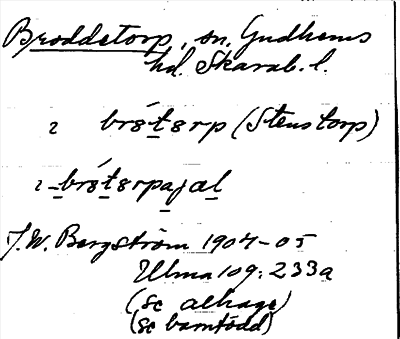 Broddetorp, sn, Gudhems
hd. Skarab. l.
2 brótørp (Stenstorp)
J. W. Bergström 1904-05
Ulma 109: 233a
(se alhage)
(se barnfödd)